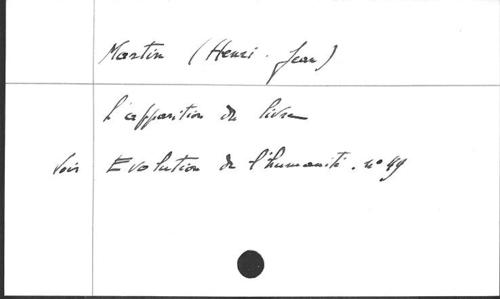 Martin (Henri-Jean)
L'apparition du livre
Voir Evolution de l'humanité. n° 49